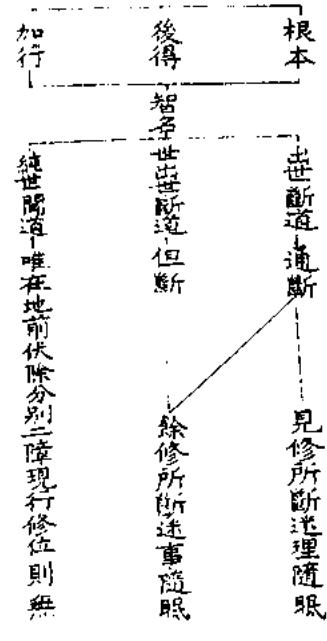 根本
後得
加行
智名
出世斷道 通斷
世出世斷道 但斷
純世間道 唯在地前伏除分別二障現行修位則無
見修所斷迷理隨眠
餘修所斷迷事隨眠